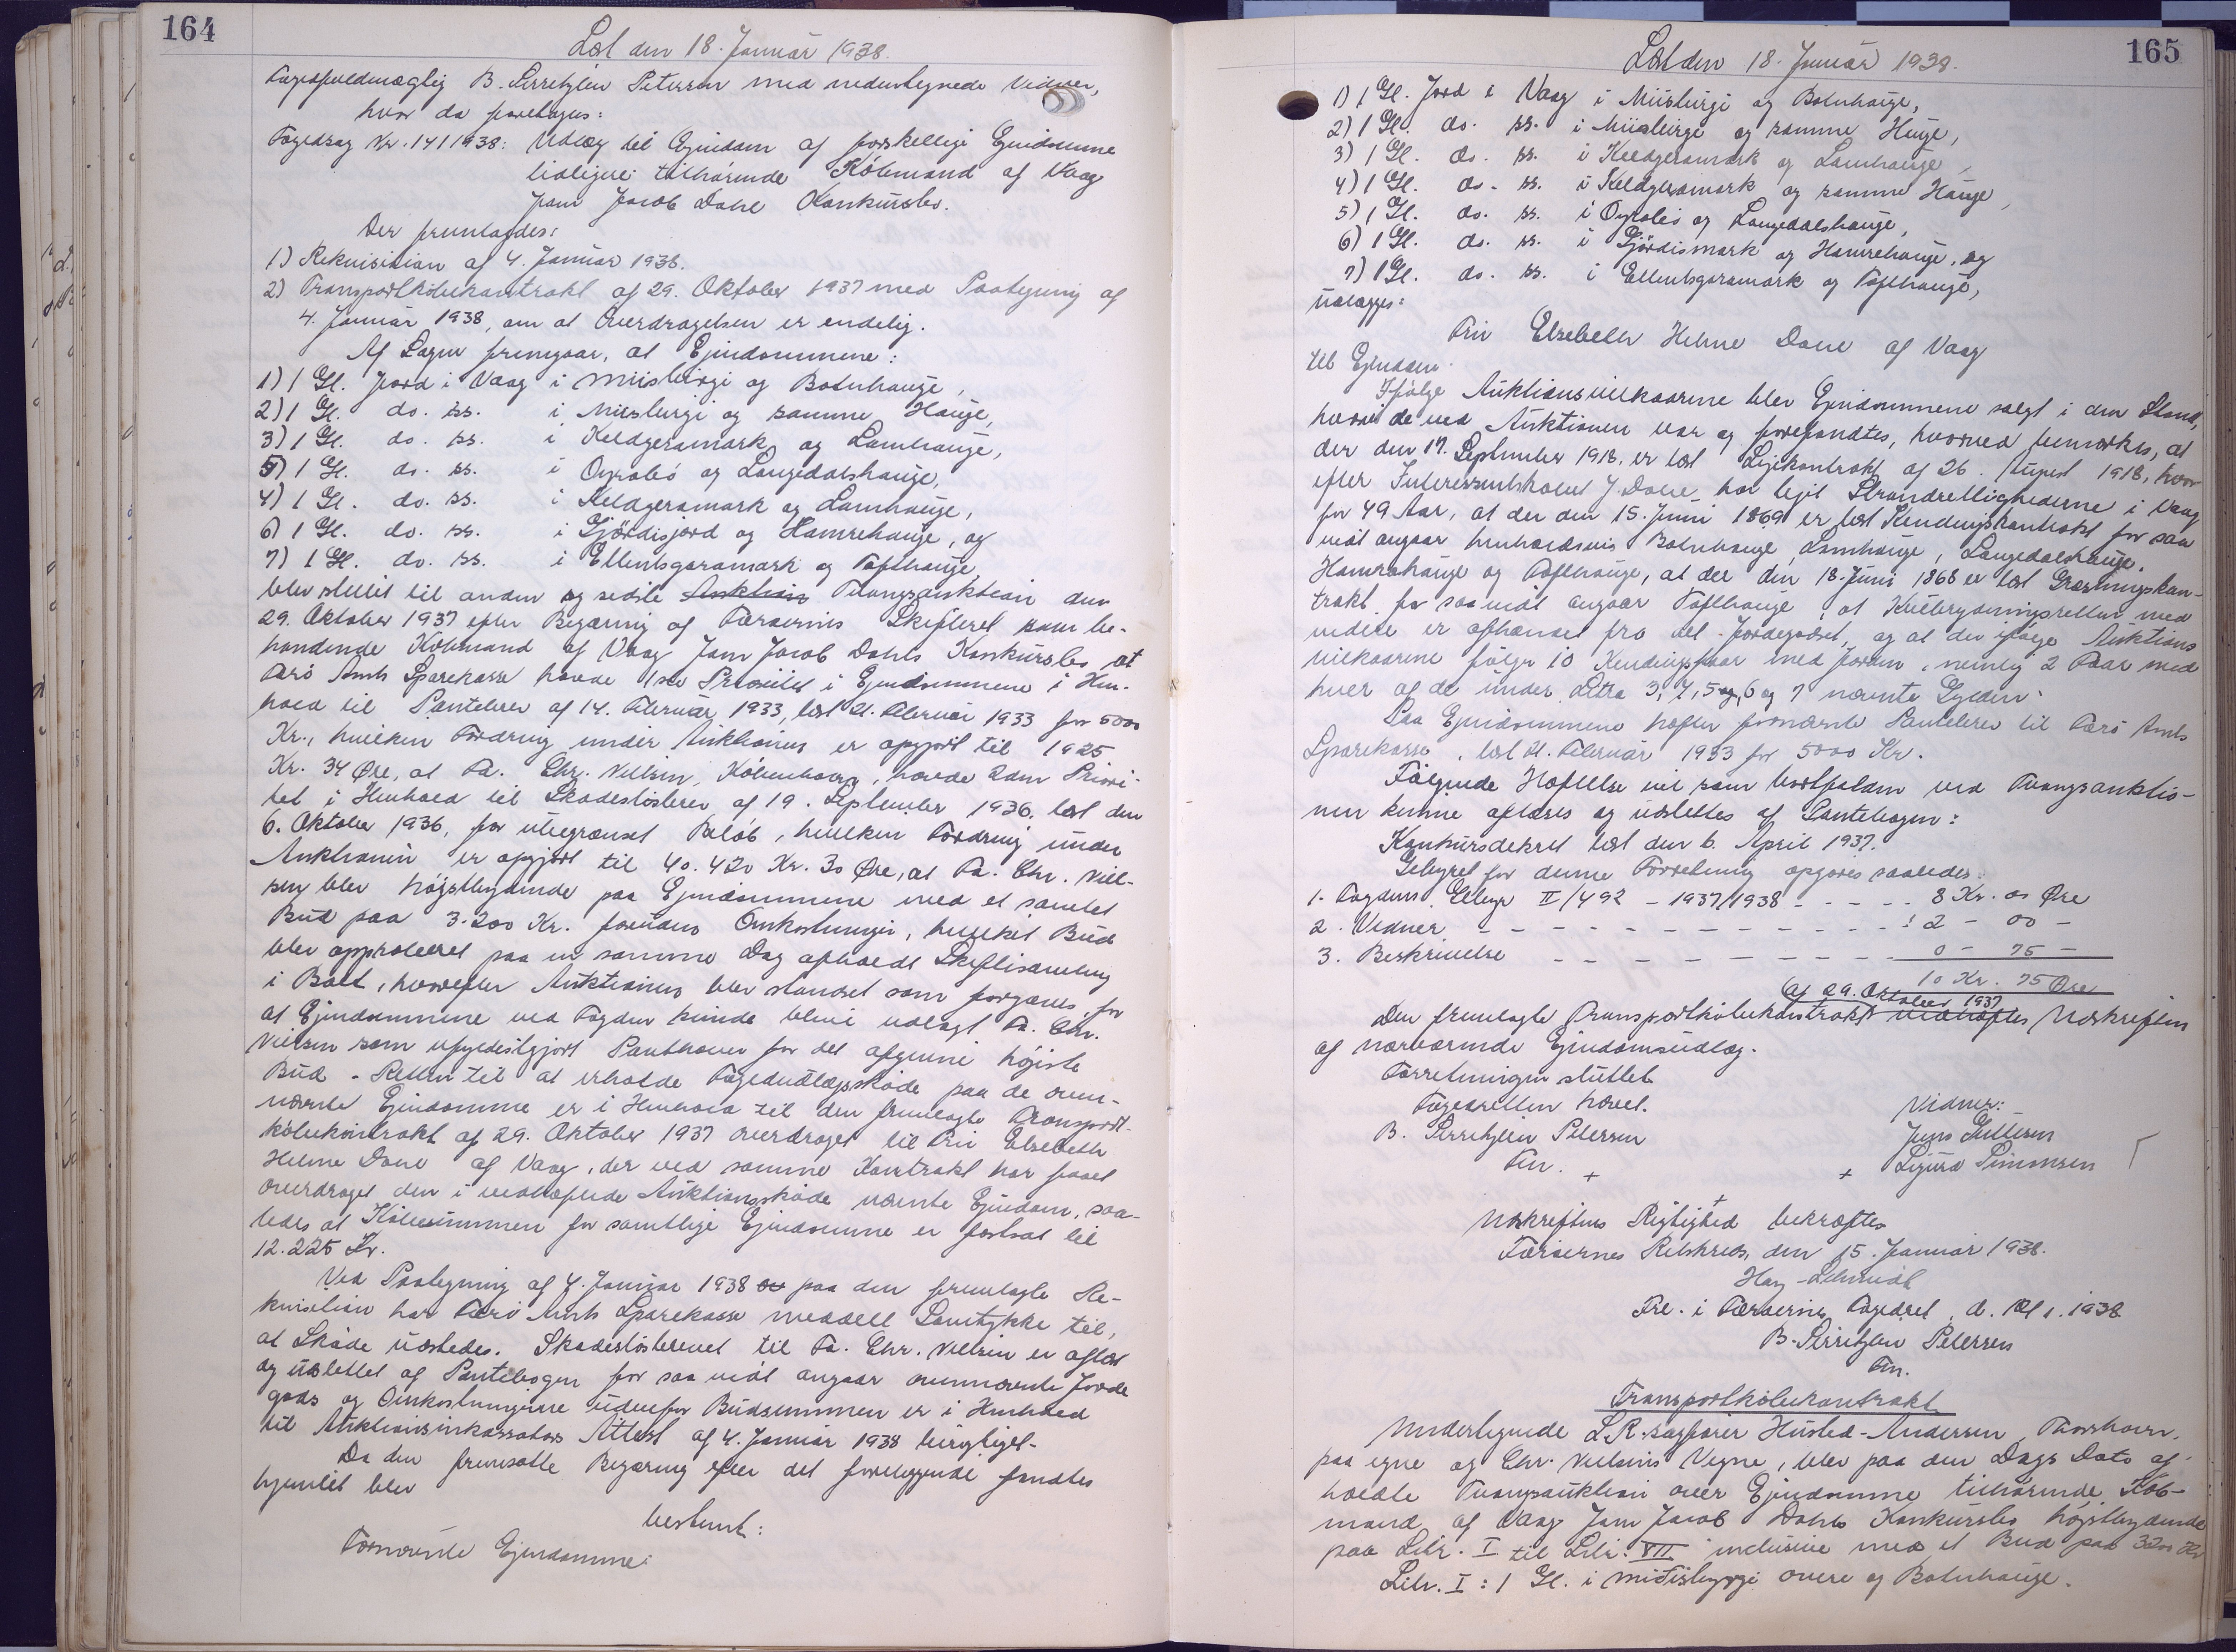 164
Læst den 18. Januar 1938.
Fogedfuldmægtig B. Sirritzlew Petersen med nedentegnede Vidner,
hvor da foretoges:
Fogedsag Nr. 141/1938: Udlæg til Ejendom af forskellige Ejendomme
tidligere tilhørende Købmand af Vaag
Jom Jacob Dahl Konkursbo.
Der fremlagdes:
1) Rekvisition af 4. Januar 1938.
2) Transportkøbekontrakt af 29. Oktober 1937 med Paategning af
4. Januar 1938, om at Overdragelsen er endelig.
Af Sagen fremgaar, at Ejendommene:
1) 1 Gl. Jord i Vaag i Miisbirgi og Botnhauge,
2) 1 Gl. do. ss. i Miisbirgi og samme Hauge,
3) 1 Gl. do. ss. i Keldgeramark og Lamhauge,
5) 1 Gl. do. ss. i Oyrobø og Laugedalshauge,
4) 1 Gl. do. ss. i Keldgeramark og Lamhauge,
6) 1 Gl. do. ss. i Gjördisjord og Hamrehauge, og
7) 1 Gl. do. ss. i Ellentsgaramark og Tofthauge
blev stillet til anden og sidste Auktion Tvangsauktion den
29. Oktober 1937 efter Begæring af Færøernes Skifteret som be-
handlende Købmand af Vaag Jom Jacob Dahls Konkursbo, at
Færø Amts Sparekasse havde 1ste Prioritet i Ejendommene i Hen-
hold til Pantebrev af 14. Februar 1933, læst 21. Februar 1933 for 5000
Kr., hvilken Fordring under Auktionen er opgjort til 1925
Kr. 34 Øre, at Fa. Chr. Nielsen, København, havde 2den Priori-
tet i Henhold til Skadesløsbrev af 19. September 1936, læst den
6. Oktober 1936, for ubegrænset Beløb, hvilken Fordring under
Auktionen er opgjort til 40.420 Kr. 30 Øre, at Fa. Chr. Niel-
sen blev højstbydende paa Ejendommene med et samlet
Bud paa 3.200 Kr. foruden Omkostninger, hvilket Bud
blev approberet paa en samme Dag afholdt Skiftesamling
i Boet, hvorefter Auktionen blev standset som forgæves, for
at Ejendommene ved Fogden kunde blive udlagt Fa. Chr.
Nielsen som ufyldestgjort Panthaver for det afgivne højeste
Bud. - Retten til at erholde Fogedudlægsskøde paa de oven-
nævnte Ejendomme er i Henhold til den fremlagte Transport-
købekontrakt af 29. Oktober 1937 overdraget til Fru Elsebeth
Helene Dahl af Vaag, der ved samme Kontrakt har faaet
overdraget den i vedhæftede Auktionsskøde nævnte Ejendom, saa-
ledes at Købesummen for samtlige Ejendomme er fastsat til
12.225 Kr.
Ved Paategning af 4. Januar 1938 paa den fremlagte Re-
kvisition har Færø Amts Sparekasse meddelt Samtykke til,
at Skøde udstedes. Skadesløsbrevet til Fa. Chr. Nielsen er aflæst
og udslettet af Pantebogen for saa vidt angaar ovennævnte Jorde-
gods og Omkostningerne udenfor Budsummen er i Henhold
til Auktionsinkassators Attest af 4. Januar 1938 berigtiget.
Da den fremsatte Begæring efter det foreliggende fandtes
hjemlet blev
bestemt:
Fornævnte Ejendomme:
165
Læst den 18. Januar 1938.
1) 1 Gl. Jord i Vaag i Miisbirgi og Botnhauge,
2) 1 Gl. do. ss. i Miisbirgi og samme Hauge,
3) 1 Gl. do. ss. i Keldgeramark og Lamhauge,
4) 1 Gl. do. ss. i Keldgeramark og samme Hauge,
5) 1 Gl. do. ss. i Oyrobø og Laugedalshauge,
6) 1 Gl. do. ss. i Gjördismark og Hamrehauge, og
7) 1 Gl. do. ss. i Ellentsgaramark og Tofthauge,
udlægges:
Fru Elsebeth Helene Dahl af Vaag
til Ejendom.
Ifølge Auktionsvilkaarene blev Ejendommene solgt i den Stand,
hvori de ved Auktionen var og forefandtes, hvorved bemærkes, at
der den 17. September 1918 er læst Lejekontrakt af 26. August 1918, hvor-
efter Interessentskabet J. Dahl har lejet Strandrettighederne i Vaag
for 49 Aar, at der den 15. Juni 1869 er læst Kendingskontrakt for saa
vidt angaar henholdsvis Botnhauge, Lamhauge, Laugedalshauge,
Hamrahauge og Tofthauge, at der den 18. Juni 1868 er læst Græsningskon-
trakt for saa vidt angaar Tofthauge, at Kulbrydningsretten med
videre er afhændet fra det Jordegodset, og at der ifølge Auktions
vilkaarene følger 10 Kendingsfaar med Jorden, nemlig 2 Faar med
hver af de under Litra 3, 4, 5 og, 6 og 7 nævnte Gylden.
Paa Ejendommene hæfter fornævnte Pantebrev til Færø Amts
Sparekasse, læst 21. Februar 1933 for 5000 Kr.
Følgende Hæftelse vil som bortfalden ved Tvangsauktio-
nen kunne aflæses og udslettes af Pantebogen:
Konkursdekret læst den 6. April 1937.
Gebyret for denne Forretning opgøres saaledes:
1. Fogdens Gebyr II/492 - 1937/1938 - - - - 8 Kr. 00 Øre
2. Vidner - - - - - - - - - - - - : 2 - 00 -
3. Beskrivelse - - - - - - - - - 0 - 75 -
10 Kr. 75 Øre
af 29. Oktober 1937
Den fremlagte Transportkøbekontrakt vedhæftes Udskriften
af nærværende Ejendomsudlæg.
Forretningen sluttet
Fogedretten hævet.
B. Sirritzlew Petersen
Fm.
Vidner:
Jens Gullesen
Sigurd Simonsen
Udskriftens Rigtighed bekræftes
Færøernes Retskreds, den 15. Januar 1938.
Hay-Schmidt
Fre. i Færøernes Fogedret, d. 18/1. 1938
B. Sirritzlew Petersen
Fm.
Transportkøbekontrakt
Undertegnede L.R. sagfører Husted-Andersen, Thorshavn,
paa egne og Chr. Nielsens Vegne, blev paa den Dags Dato af-
holdte Tvangsauktion over Ejendomme tilhørende Køb-
mand af Vaag Jom Jacob Dahls Konkursbo højstbydende
paa Litr. I til Litr. VII inclusive med et Bud paa 3200 Kr
Litr. I: 1 Gl. i Midtisbyggi overe og Botnhauge.